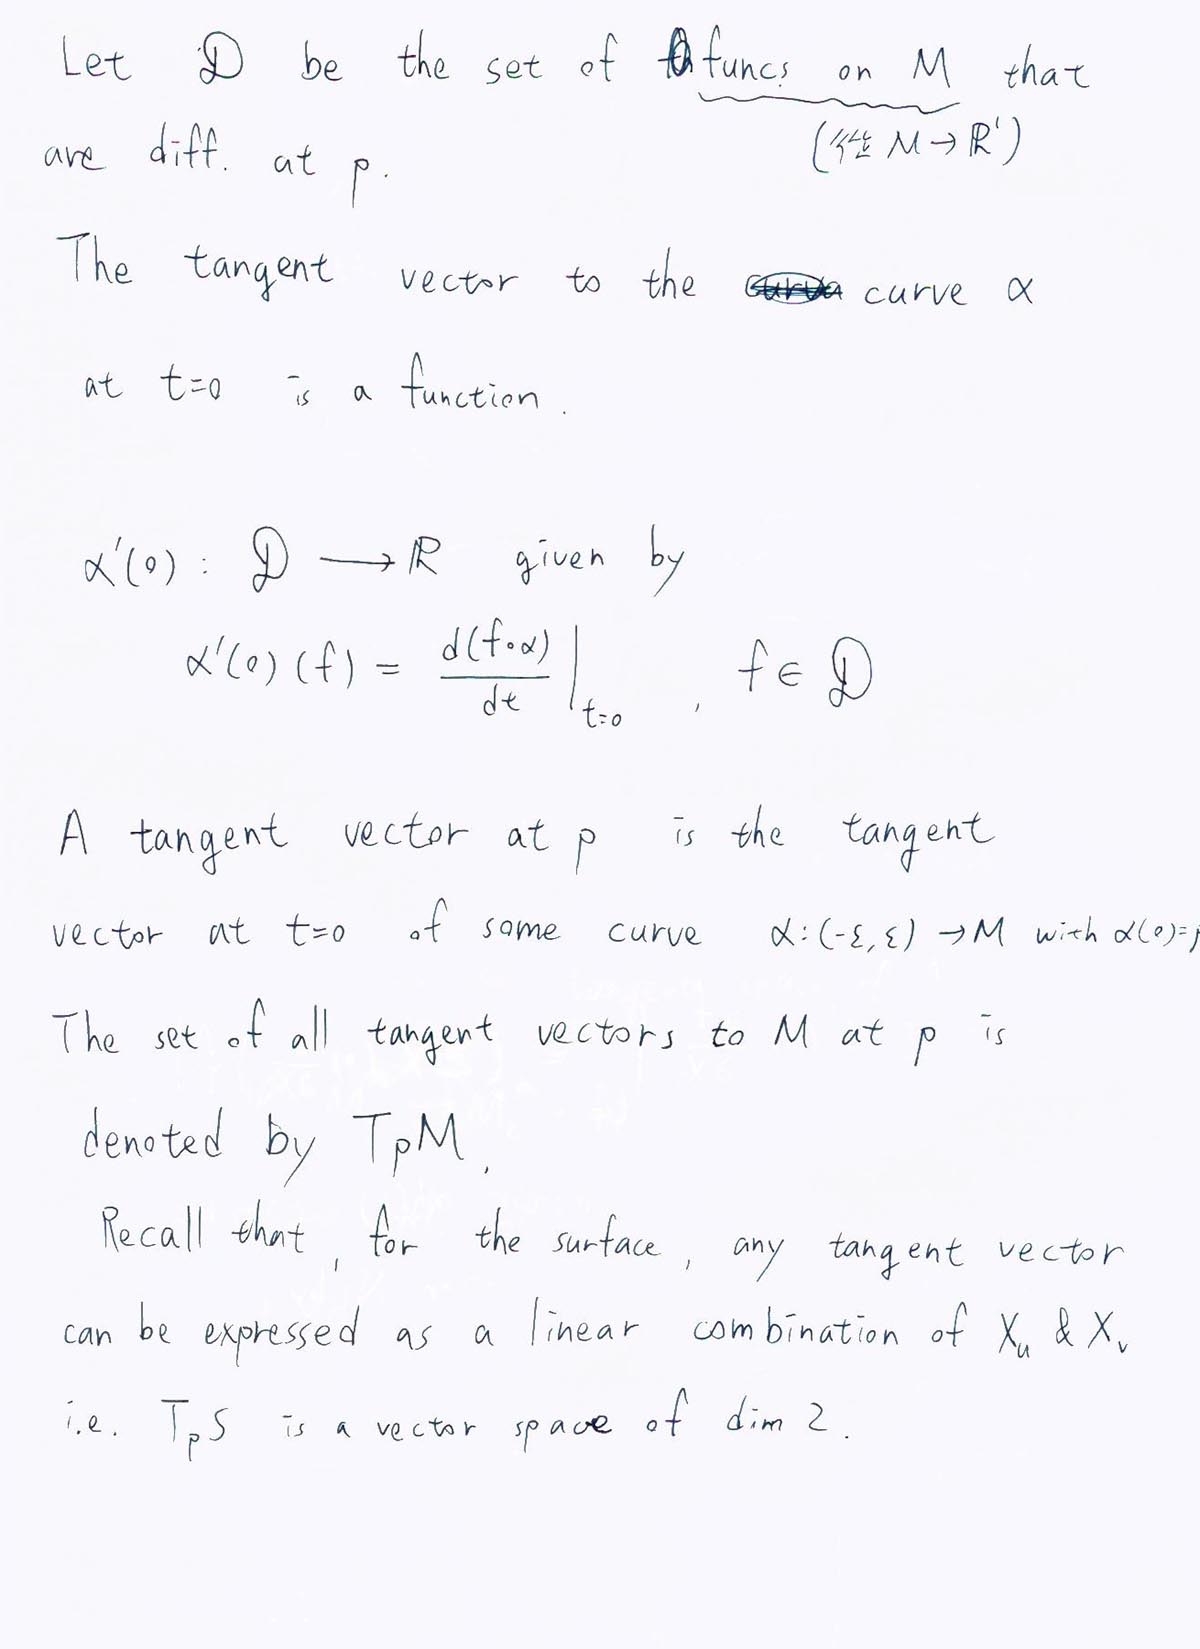 Let 𝒟 be the set of funcs on M that
(從 M → ℝ¹)
are diff. at p.
The tangent vector to the curve α
at t=0 is a function.
α'(0) : 𝒟 ⟶ ℝ given by
α'(0) (f) = d(f∘α)/dt |t=0 , f ∈ 𝒟
A tangent vector at p is the tangent
vector at t=0 of some curve α: (-ε, ε) → M with α(0)=p
The set of all tangent vectors to M at p is
denoted by TpM,
Recall that, for the surface, any tangent vector
can be expressed as a linear combination of Xu & Xv
i.e. TpS is a vector space of dim 2.